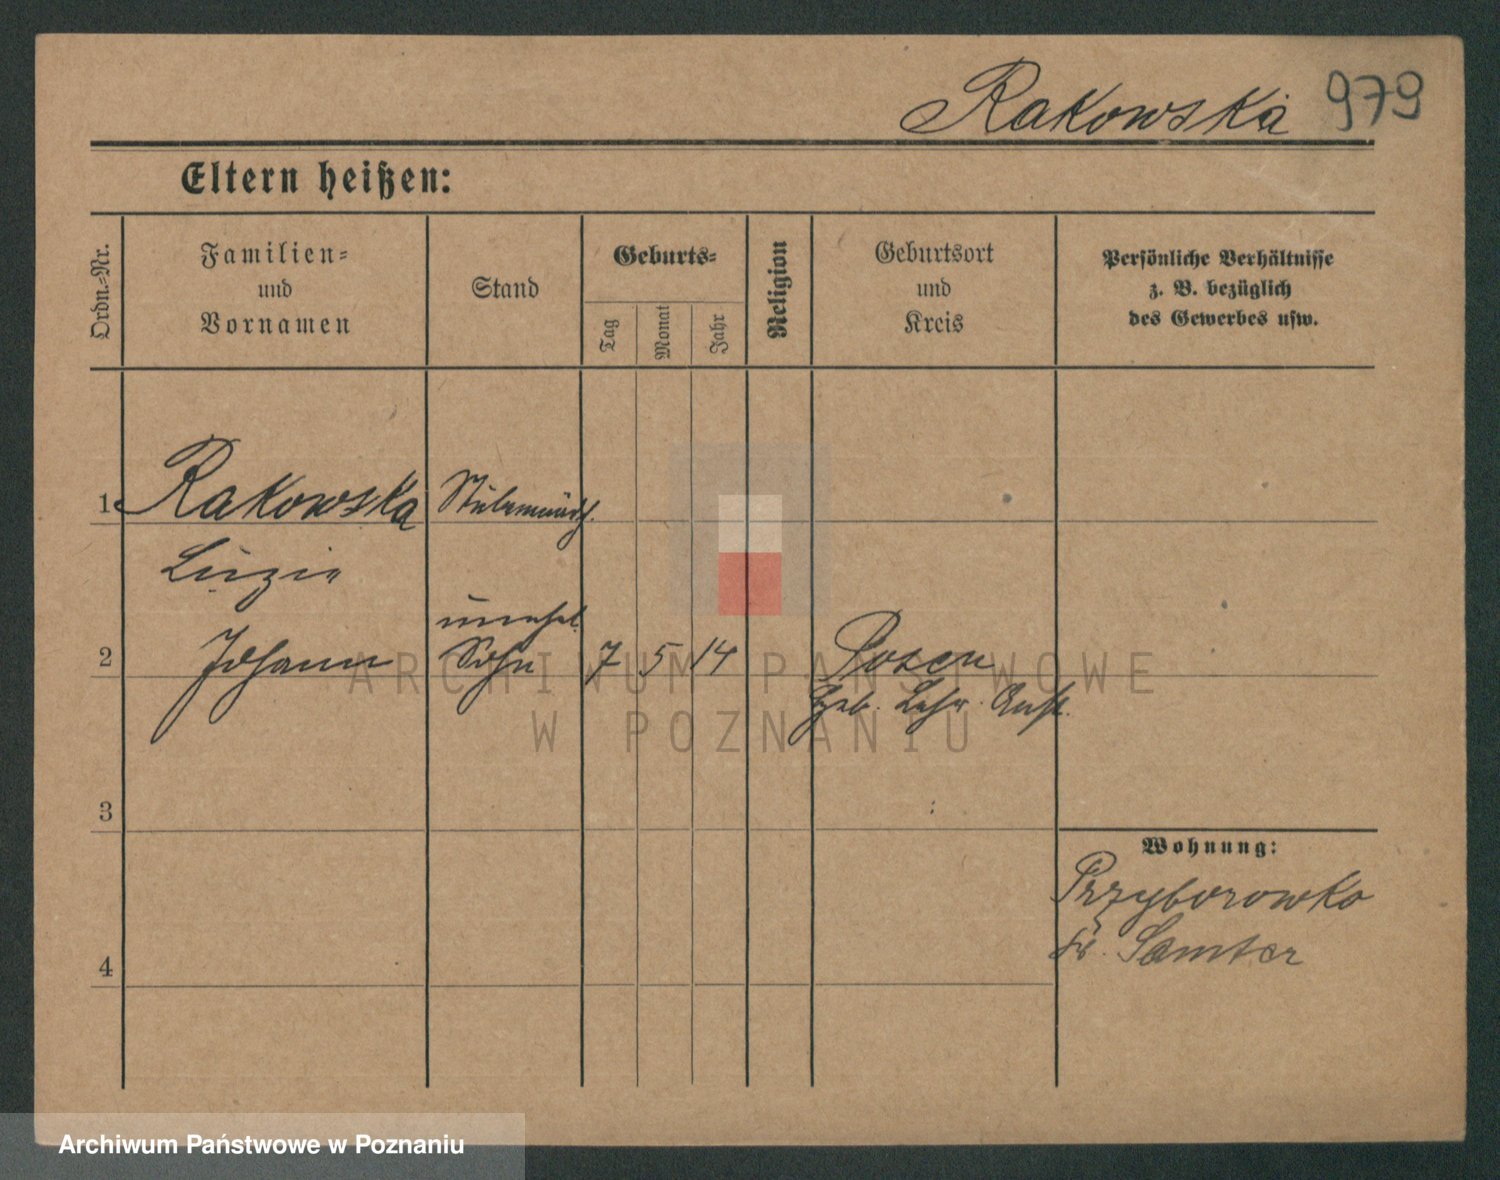 Rakowska 979
Eltern heißen:
Ordn.-Nr.
Familien-
und
Vornamen
Stand
Geburts-
Tag
Monat
Jahr
Religion
Geburtsort
und
Kreis
Persönliche Verhältnisse
z. B. bezüglich
des Gewerbes usw.
1 Rakowska Stubenmädch.
Luzie
unehel.
2 Johann Sohn 7 5 14 Posen
Geb. Lehr. Anst.
3
Wohnung:
Przyborowko
Kr. Samter
4
ARCHIWUM PAŃSTWOWE
W POZNANIU
Archiwum Państwowe w Poznaniu